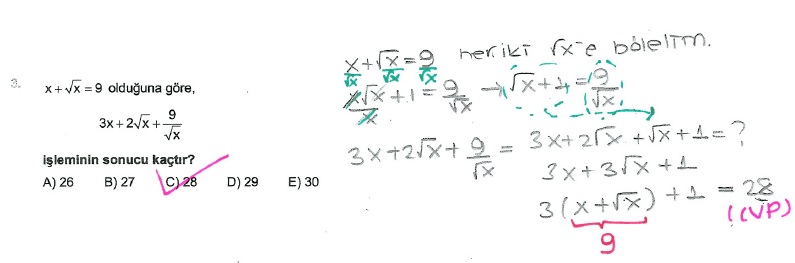 3.
x + √x = 9 olduğuna göre,
3x + 2√x + 9/√x
işleminin sonucu kaçtır?
A) 26 B) 27 C) 28 D) 29 E) 30
x/√x + √x/√x = 9/√x her iki √x'e bölelim.
x√x/x + 1 = 9/√x → √x + 1 = 9/√x
3x + 2√x + 9/√x = 3x + 2√x + √x + 1 = ?
3x + 3√x + 1
3(x + √x) + 1 = 28
9
(CVP)